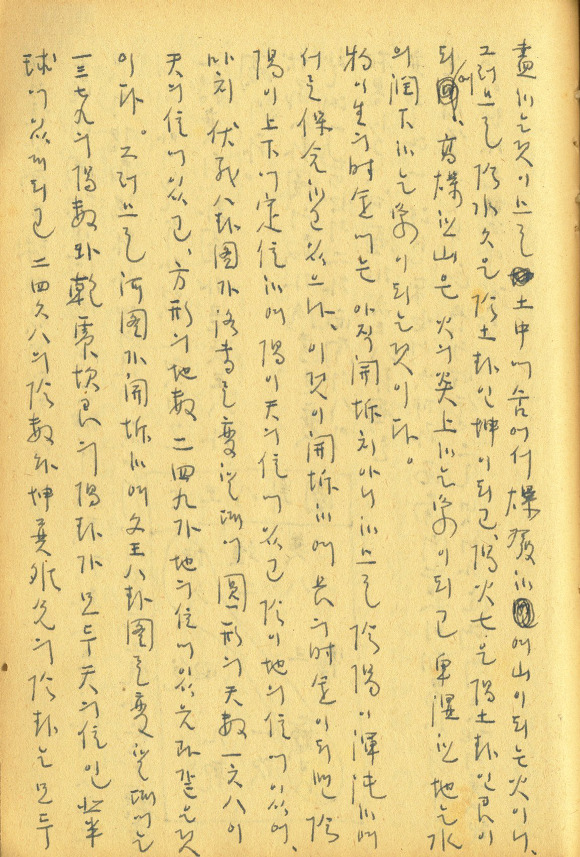 盡하는것이므로 土中에 숨어서 燥發하 여 山이되는 火이니,
그러므로 陰水六은 陰土卦인 坤이되고, 陽火七은 陽土卦인 艮이
되어, 高燥한 山은 火의 炎上하는 象이되고 卑濕한 地는 水
의 潤下하는 象이 되는것이다.
物이 生의 時運에는 아직 開坼치 아니하므로 陰陽이 渾沌하여
서로 保合하고 있으나, 이것이 開坼하여 長의 時運이 되면 陰
陽이 上下에 定位하여 陽이 天의 位에 있고 陰이 地의 位에 있어,
마치 伏羲八卦圖가 洛書로 變할 때에 圓形의 天數 一六八이
天의 位에 있고, 方形의 地數 二四九가 地의 位에 있는 것과 같은 것
이다. 그러므로 河圖가 開坼하여 文王八卦圖로 變할 때에는
一三七九의 陽數와 乾震坎艮의 陽卦가 모두 天의 位인 北半
球에 있게 되고 二四六八의 陰數와 坤巽離兌의 陰卦는 모두